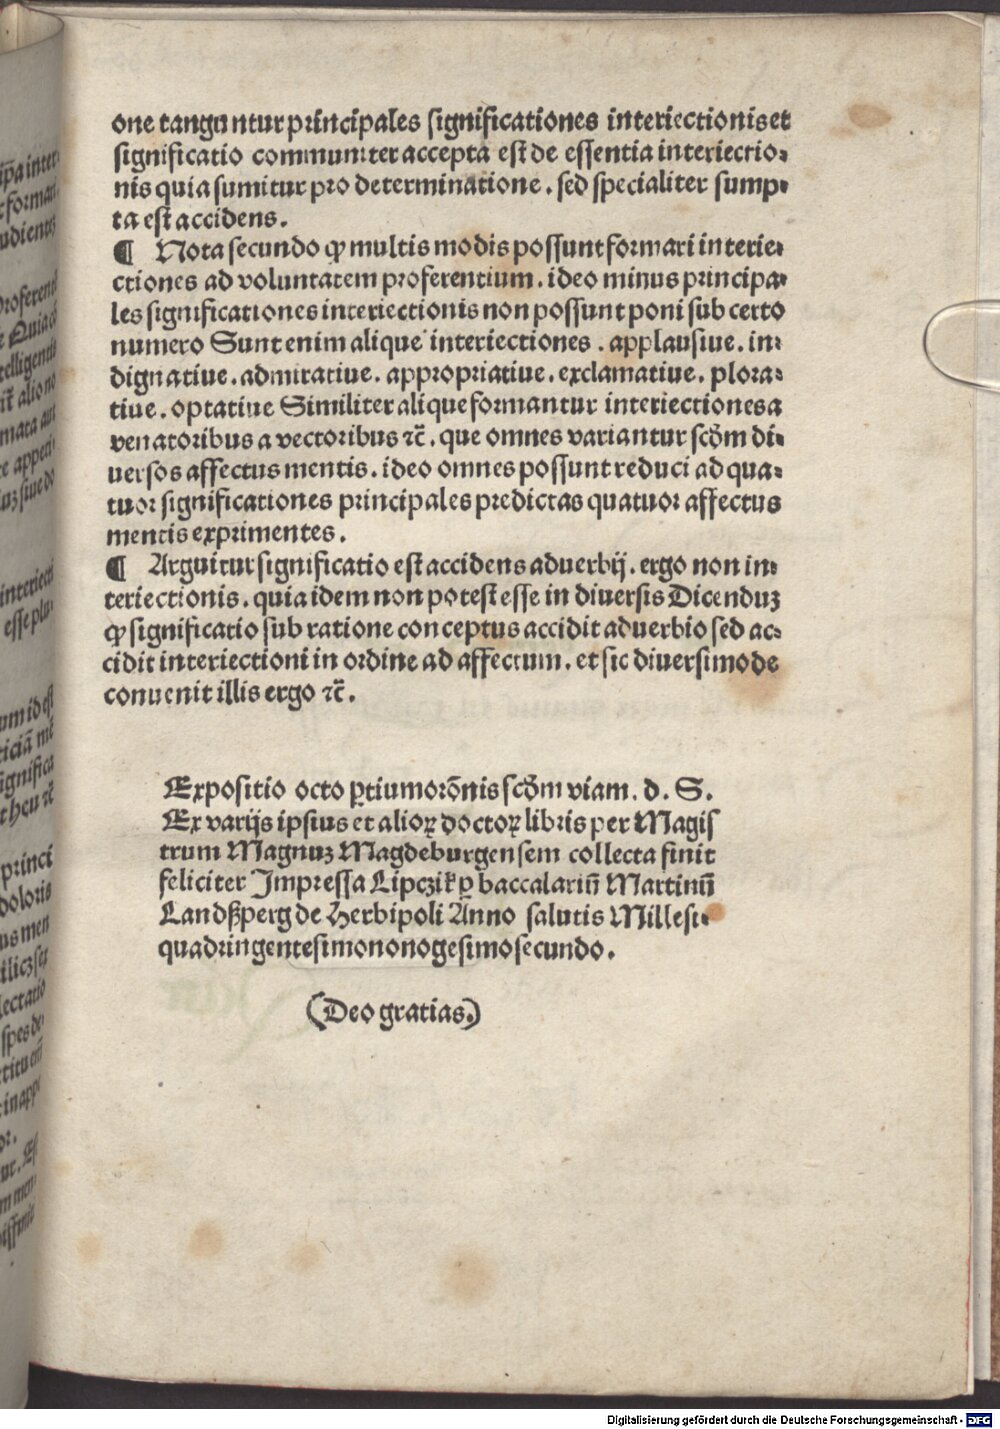 one tanguntur principales significationes interiectionis et
significatio communiter accepta est de essentia interiectio⸗
nis quia sumitur pro determinatione. sed specialiter sump⸗
ta est accidens.
¶ Nota secundo ꝙ multis modis possunt formari interie⸗
ctiones ad voluntatem proferentium. ideo minus principa⸗
les significationes interiectionis non possunt poni sub certo
numero Sunt enim alique interiectiones. applausiue. in⸗
dignatiue. admiratiue. appropriatiue. exclamatiue. plora⸗
tiue. optatiue Similiter alique formantur interiectiones a
venatoribus a vectoribus ⁊c̄. que omnes variantur scd̄m di⸗
uersos affectus mentis. ideo omnes possunt reduci ad qua⸗
tuor significationes principales predictas quatuor affectus
mentis exprimentes.
¶ Arguitur significatio est accidens aduerbij. ergo non in⸗
teriectionis. quia idem non potest esse in diuersis Dicenduꝫ
ꝙ significatio sub ratione conceptus accidit aduerbio sed ac⸗
cidit interiectioni in ordine ad affectum. et sic diuersimode
conuenit illis ergo ⁊c̄.
Expositio octo ꝑtium orōnis scd̄m viam. d. S.
Ex varijs ipsius et alioꝝ doctoꝝ libris per Magis
trum Magnuꝫ Magdeburgensem collecta finit
feliciter Impressa Lipczik ꝑ baccalariū Martinū
Landßperg de Herbipoli Anno salutis Millesi⸗
quadringentesimononogesimosecundo.
(Deo gratias.)
Digitalisierung gefördert durch die Deutsche Forschungsgemeinschaft - DFG